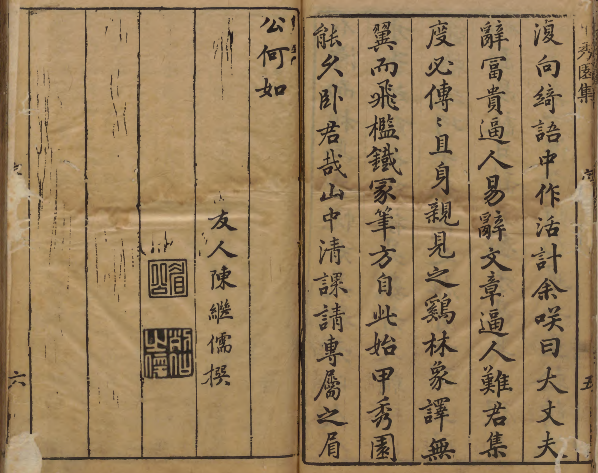 秀園集
復向綺語中作活計余咲曰大丈夫
辭冨貴逼人易辭文章逼人難君集
度必傳〻且身親見之鷄林象譯無
翼而飛檻鐵冢筆方自此始甲秀園
能久卧君哉山中清課請專屬之眉
公何如
友人陳繼儒撰
五
六